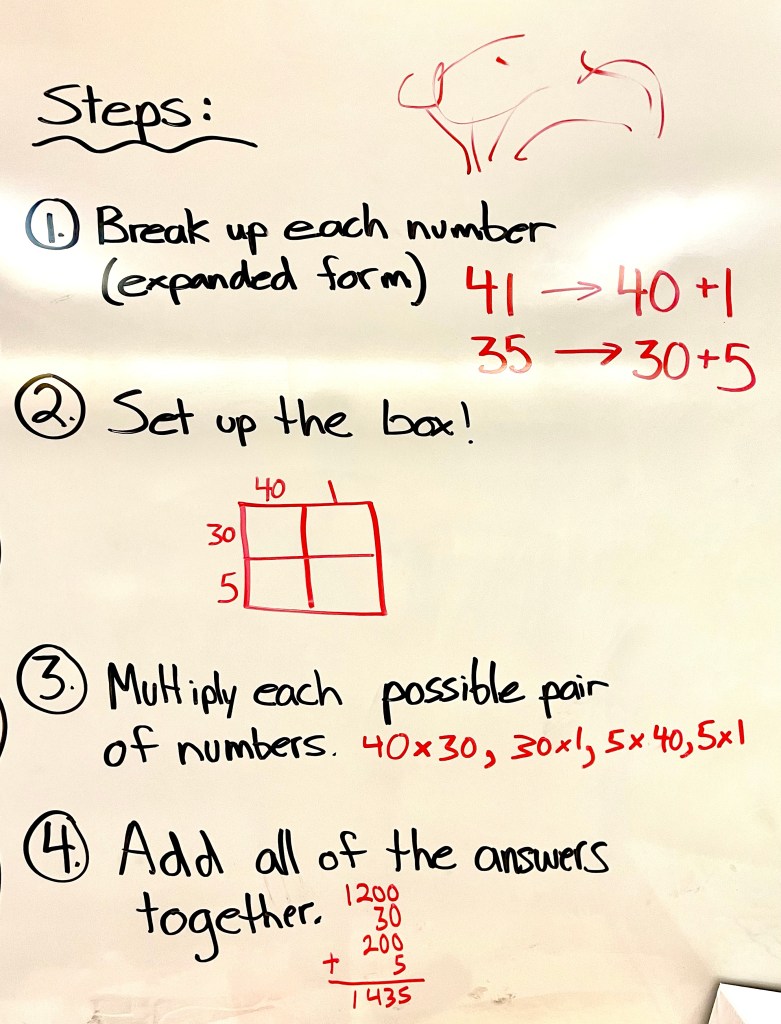 Steps:
1. Break up each number
(expanded form) 41 → 40 + 1
35 → 30+5
2. Set up the box!
40 1
30
5
3. Multiply each possible pair
of numbers. 40x30, 30x1, 5x40, 5x1
4. Add all of the answers
together. 1200
30
200
+ 5
1435